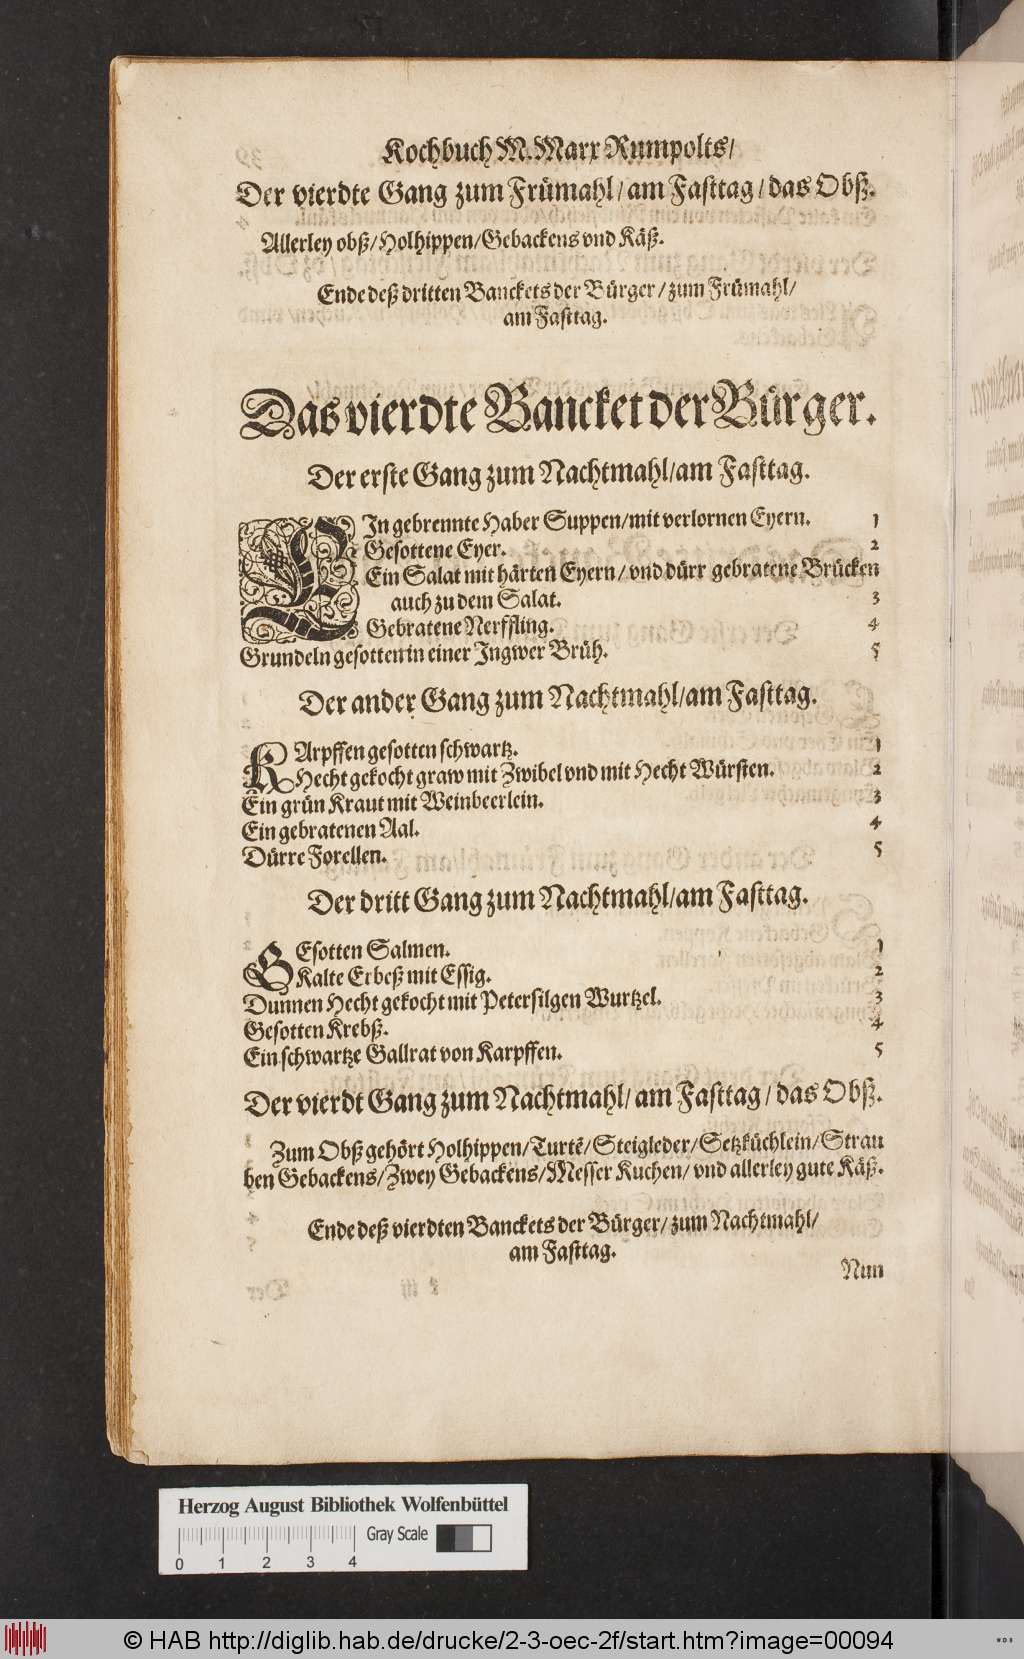 Kochbuch M. Marx Rumpolts/
Der vierdte Gang zum Frümahl/am Fasttag/das Obß.
Allerley obß/Holhippen/Gebackens vnd Käß.
Ende deß dritten Banckets der Bürger/zum Frümahl/
am Fasttag.
Das vierdte Bancket der Bürger.
Der erste Gang zum Nachtmahl/am Fasttag.
EIn gebrennte Haber Suppen/mit verlornen Eyern. 1
Gesottene Eyer. 2
Ein Salat mit härten Eyern/vnd dürr gebratene Brücken
auch zu dem Salat. 3
Gebratene Nerffling. 4
Grundeln gesotten in einer Ingwer Brüh. 5
Der ander Gang zum Nachtmahl/am Fasttag.
KArpffen gesotten schwartz. 1
Hecht gekocht graw mit Zwibel vnd mit Hecht Würsten. 2
Ein grün Kraut mit Weinbeerlein. 3
Ein gebratenen Aal. 4
Dürre Forellen. 5
Der dritt Gang zum Nachtmahl/am Fasttag.
GEsotten Salmen. 1
Kalte Erbeß mit Essig. 2
Dunnen Hecht gekocht mit Petersilgen Wurtzel. 3
Gesotten Krebß. 4
Ein schwartze Gallrat von Karpffen. 5
Der vierdt Gang zum Nachtmahl/am Fasttag/das Obß.
Zum Obß gehört Holhippen/Turtē/Steigleder/Setzküchlein/Strau
ben Gebackens/Zwey Gebackens/Messer Kuchen/vnd allerley gute Käß.
Ende deß vierdten Banckets der Bürger/zum Nachtmahl/
am Fasttag.
Nun
Herzog August Bibliothek Wolfenbüttel
Gray Scale
0 1 2 3 4
© HAB http://diglib.hab.de/drucke/2-3-oec-2f/start.htm?image=00094